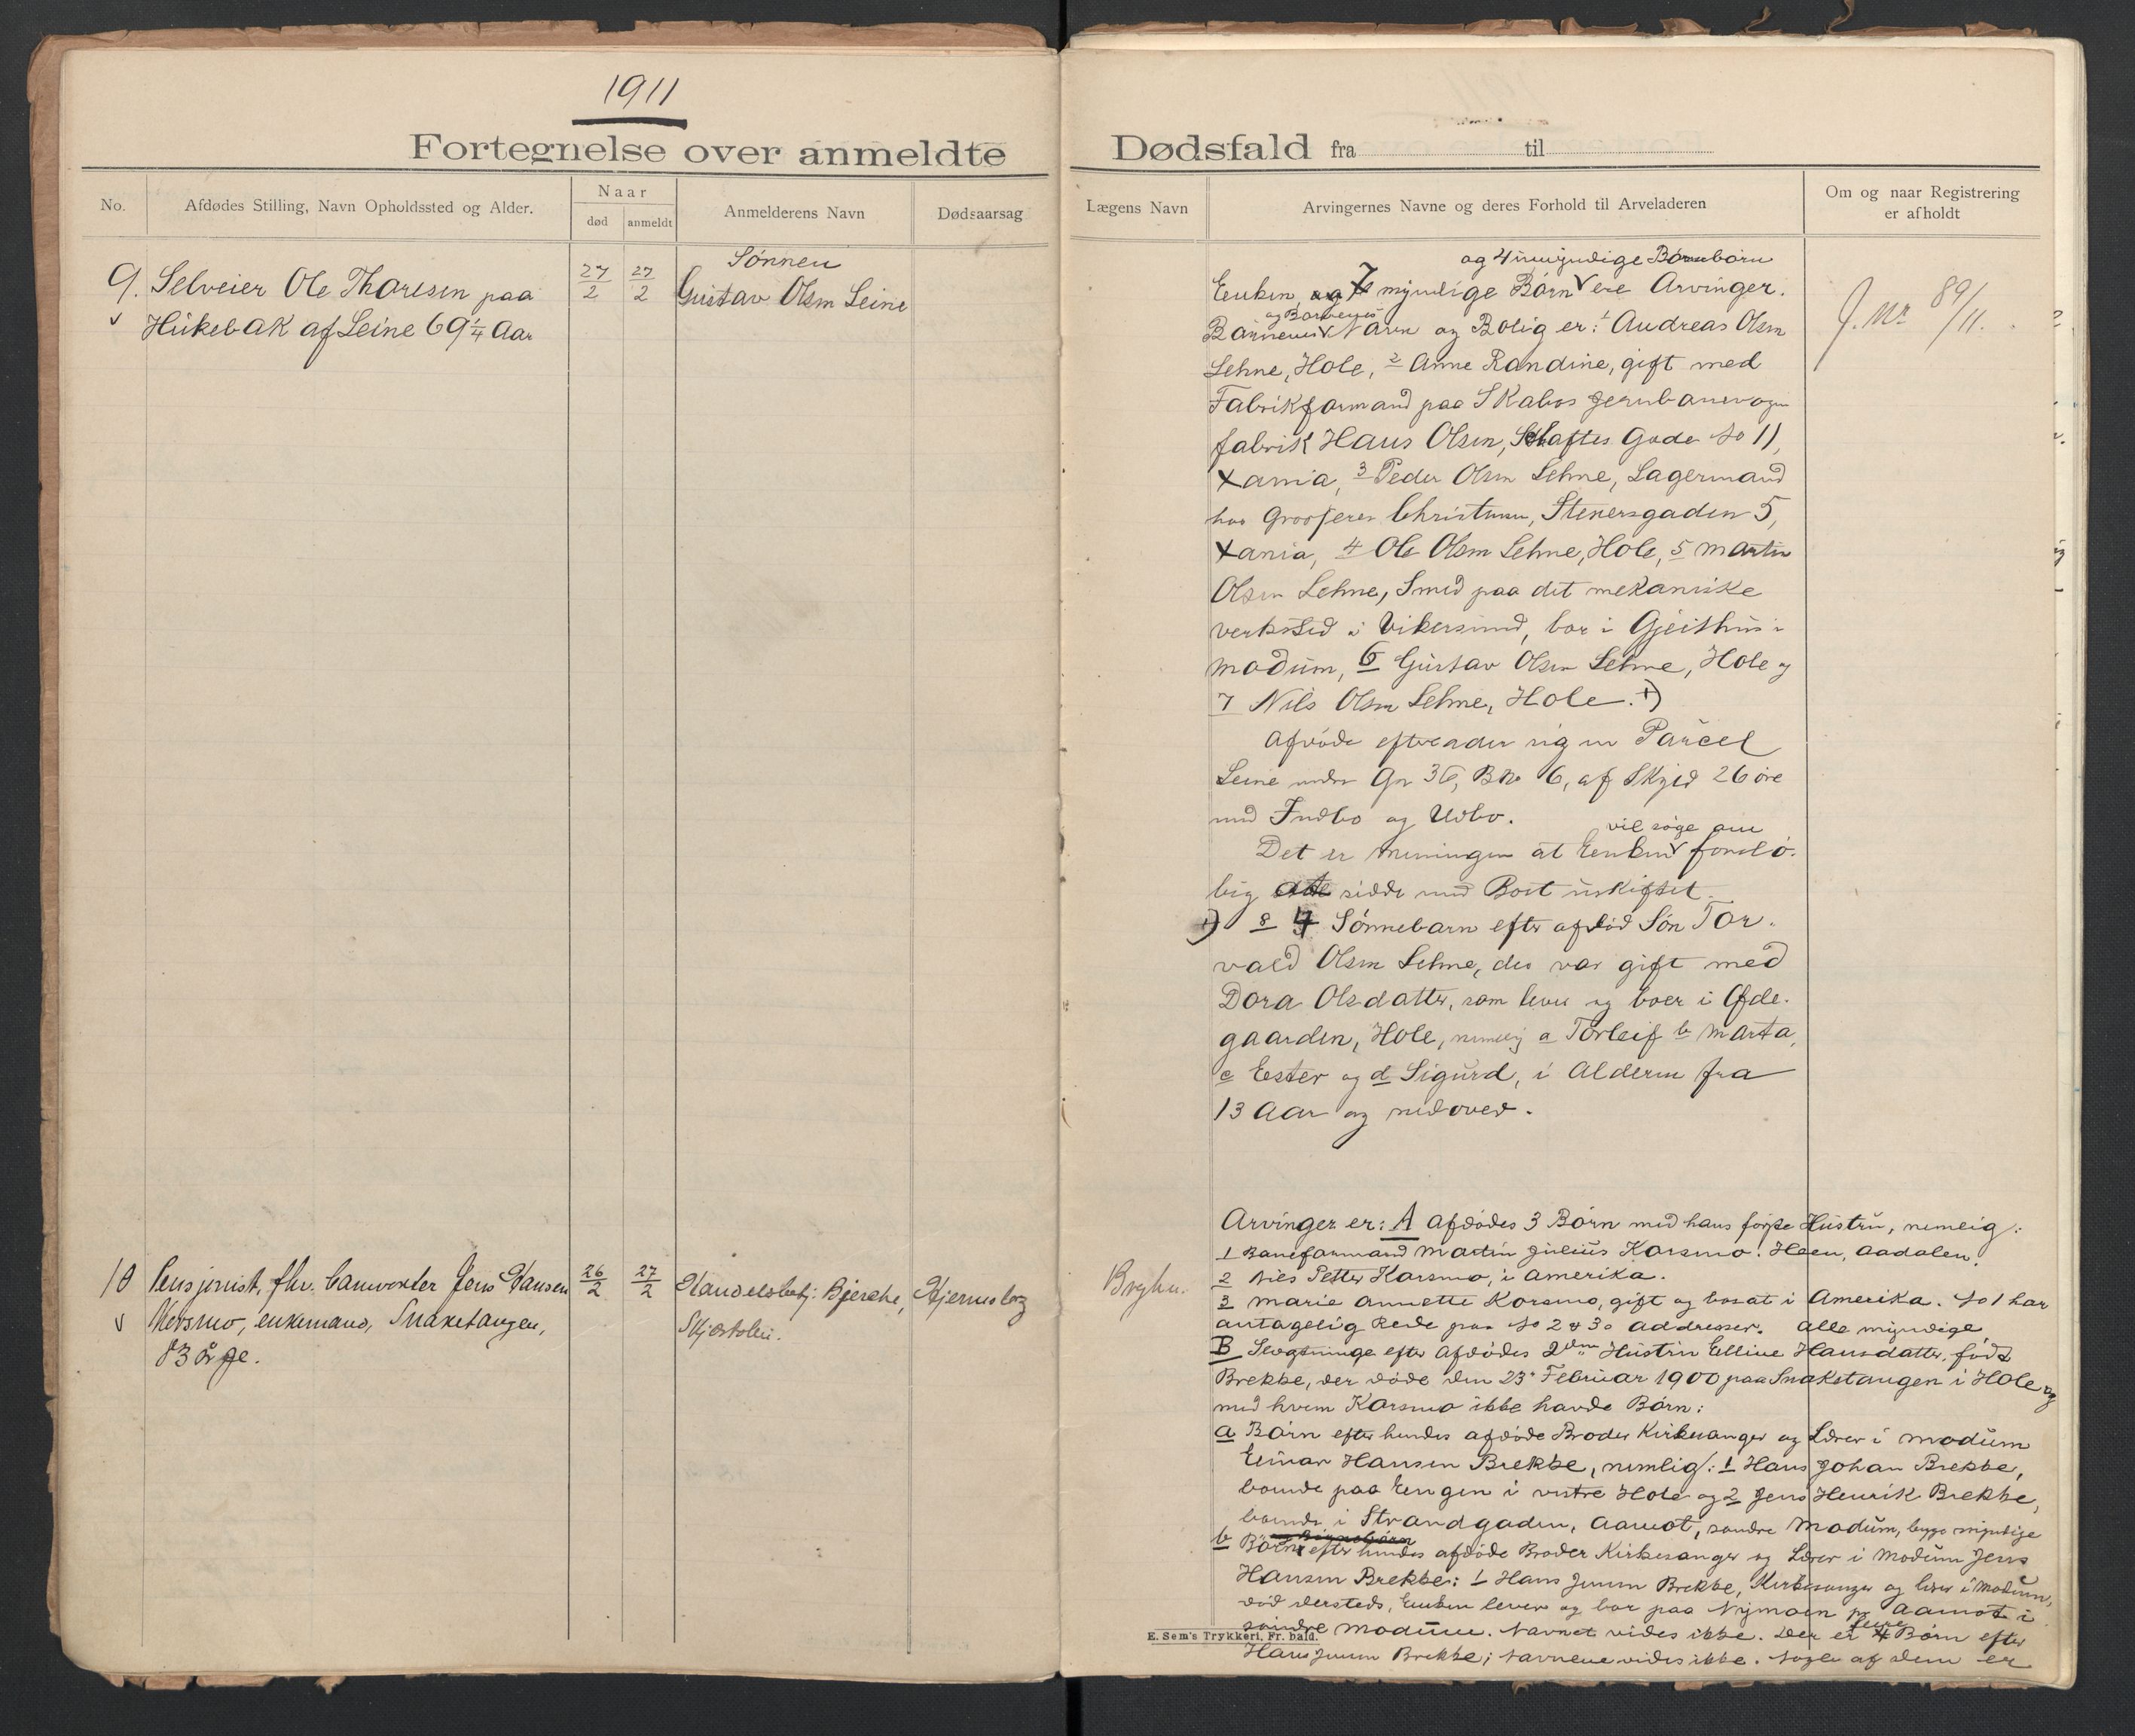 1911
Fortegnelse over anmeldte Dødsfald fra til
No.
Afdødes Stilling, Navn Opholdssted og Alder.
Naar
død
anmeldt
Anmelderens Navn
Dødsaarsag
Lægens Navn
Arvingernes Navne og deres Forhold til Arveladeren
Om og naar Registrering
er afholdt
9. Selveier Ole Thoresen paa
Hukebak af Leine 69 1/4 Aar
27/2
27/2
Sønnen
Gustav Olsen Leine
og 4 umyndige Børnebørn
Enken, og 7 myndige Børn ere Arvinger.
og Børnenes
Børnenes Navn og Bolig er: 1 Andreas Olsen
Lehne, Hole, 2 Anne Randine, gift med
Fabrikformand paa Skabos Jernbanevogn
fabrik Hans Olsen, Gade No 11,
Xania, 3 Peder Olsen Lehne, Lagermand
hos Grosserer Christensen, Stenersgaden 5,
Xania, 4 Ole Olsen Lehne, Hole, 5 Martin
Olsen Lehne, Smed paa det mekaniske
verksted i Vikersund, bor i Gjeithus i
Modum, 6 Gustav Olsen Lehne, Hole og
7 Nils Olsen Lehne, Hole. +)
Afdøde efterlader sig en Parcel
Leine under Gn 36, Bno 6, af Skyld 26 øre
med Indbo og Udbo.
vil søge om
Det er meningen at Enken foreløbig
at sidde med Boet uskiftet.
+) 8 4 Sønnebarn efter afdød Søn Tor-
vald Olsen Lehne, der var gift med
Dora Olsdatter, som lever og boer i Øde-
gaarden, Hole, nemlig a Torleif b Marta,
c Ester og d Sigurd, i Alderen fra
13 Aar og nedover.
J. Nr 89/11.
10 Pensjonist, fhv. banevokter Jens Hansen
Korsmo, enkemand, Snaketangen,
83 år gl.
26/2
27/2
Handelsbetj: Bjerke,
Skjørtolen.
Hjerneslag
Bryhn.
Arvinger er: A Afdødes 3 Børn med hans første Hustru, nemlig:
1 Baneformand Martin Julius Korsmo. Heen, Aadalen.
2 Nils Petter Korsmo, i Amerika.
3 Marie Annette Korsmo, gift og bosat i Amerika. No 1 har
antagelig Rede paa No 2 & 3s addresser. Alle myndige
B Slegtninge efter Afdødes 2den Hustru Elline Hansdatter, født
Brekke, der døde den 23' Februar 1900 paa Snaketangen i Hole og
med hvem Korsmo ikke havde Børn:
a Børn efter hendes afdøde Broder Kirkesanger og Lærer i Modum
Einar Hansen Brekke, nemlig: 1 Hans Johan Brekke,
boende paa Engen i vestre Hole og 2 Jens Henrik Brekke,
boende i Strandgaden, Aamot, søndre Modum, begge myndige
b Børn efter hendes afdøde Broder Kirkesanger og Lærer i Modum Jens
Hansen Brekke: 1 Hans Juum Brekke, Kirkesanger og lærer i Modum,
død dersteds, Enken lever og bor paa Nymoen pr Aamot i
søndre Modum. Navnet vides ikke. Der er flere Børn efter
Hans Juum Brekke; Navnene vides ikke. Nogle af dem er
E. Sem's Trykkeri, Fr. hald.